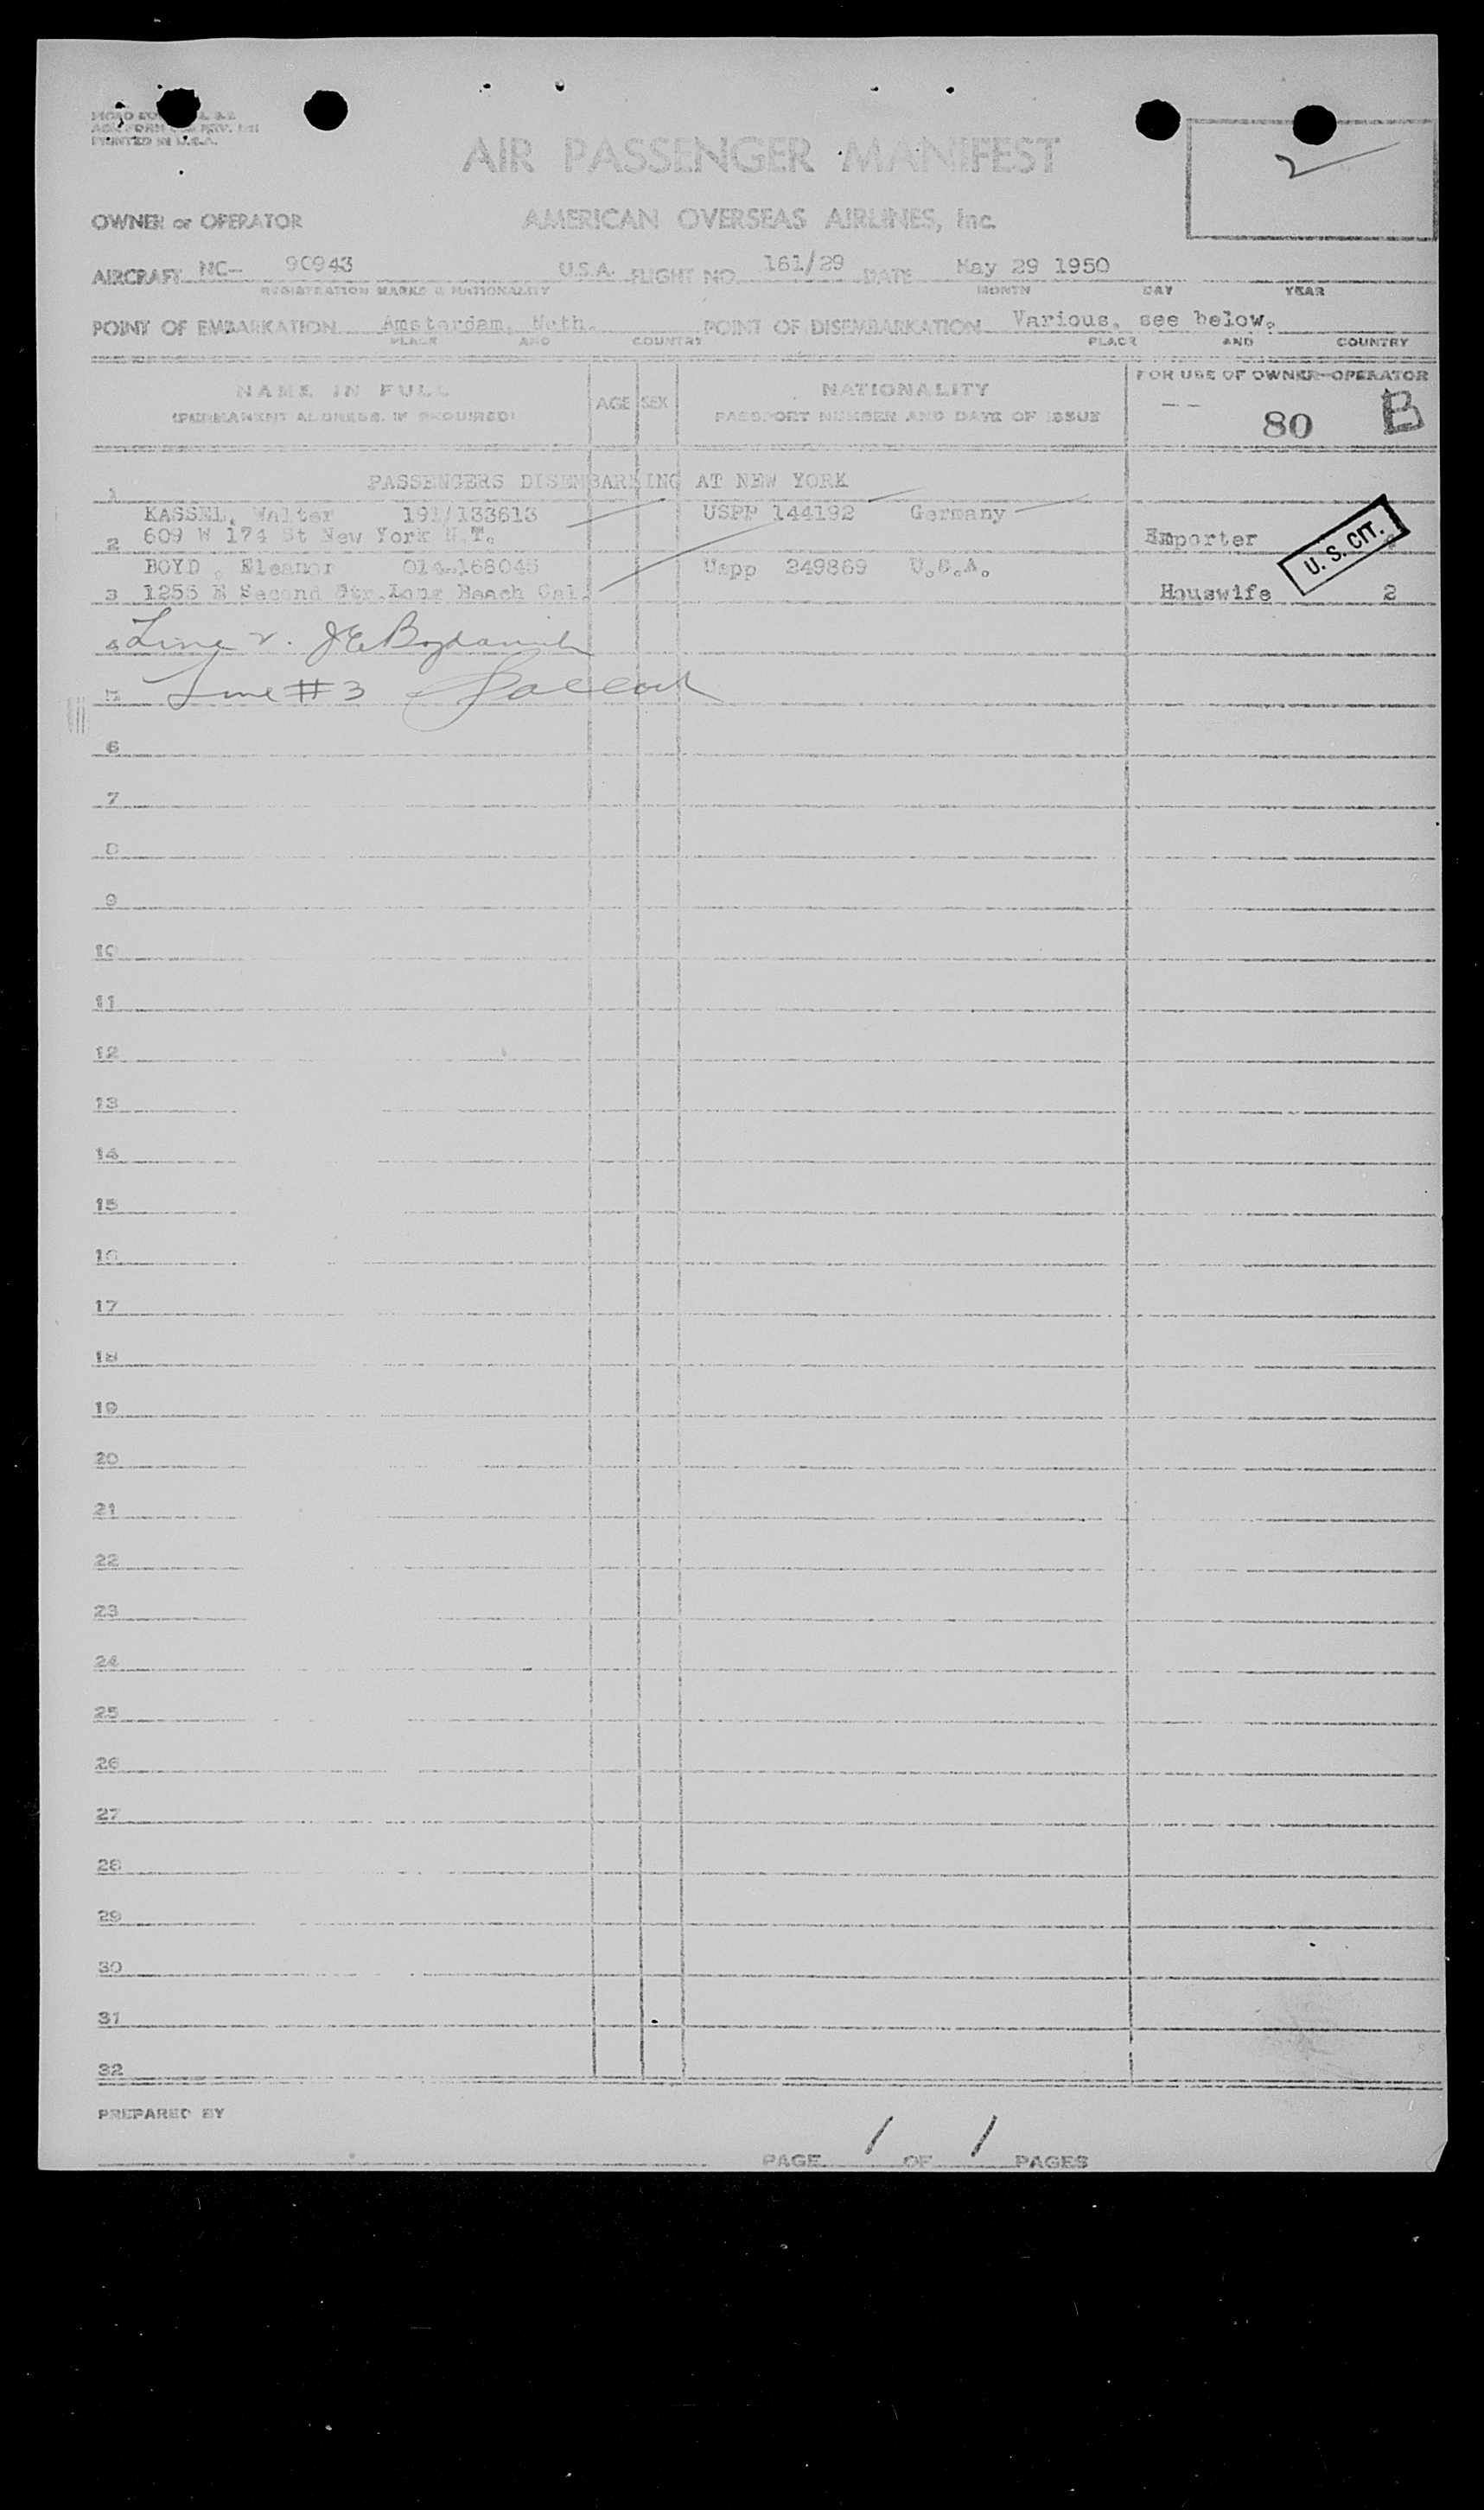 PRINTED IN U.S.A.
AIR PASSENGER MANIFEST
2
OWNER or OPERATOR AMERICAN OVERSEAS AIRLINES, Inc.
AIRCRAFT NC- 90943 U.S.A. FLIGHT NO. 161/29 DATE May 29 1950
REGISTRATION MARKS & NATIONALITY MONTH DAY YEAR
POINT OF EMBARKATION Amsterdam, Neth. POINT OF DISEMBARKATION Various, see below.
PLACE AND COUNTRY PLACE AND COUNTRY
NAME IN FULL
(PERMANENT ADDRESS, IF REQUIRED)
AGE SEX
NATIONALITY
PASSPORT NUMBER AND DATE OF ISSUE
FOR USE OF OWNER-OPERATOR
-- 80 B
1 PASSENGERS DISEMBARKING AT NEW YORK
KASSEL, Walter 191/133613 USPP 144192 Germany
2 609 W 174 St New York N.Y. Emporter U. S. CIT.
BOYD , Eleanor 014-168045 Uspp 249869 U.S.A.
3 1255 E Second Str.Long Beach Cal. Houswife 2
4 Line 2.
5 Line #3
6
7
8
9
10
11
12
13
14
15
16
17
18
19
20
21
22
23
24
25
26
27
28
29
30
31
32
PREPARED BY
PAGE 1 OF 1 PAGES